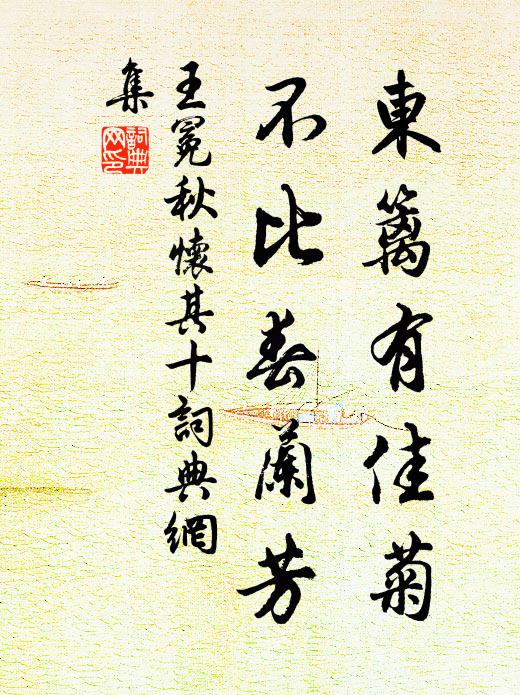 東籬有佳菊
不比春蘭芳
王冕秋懷其十詞典網
集
詞典
网印